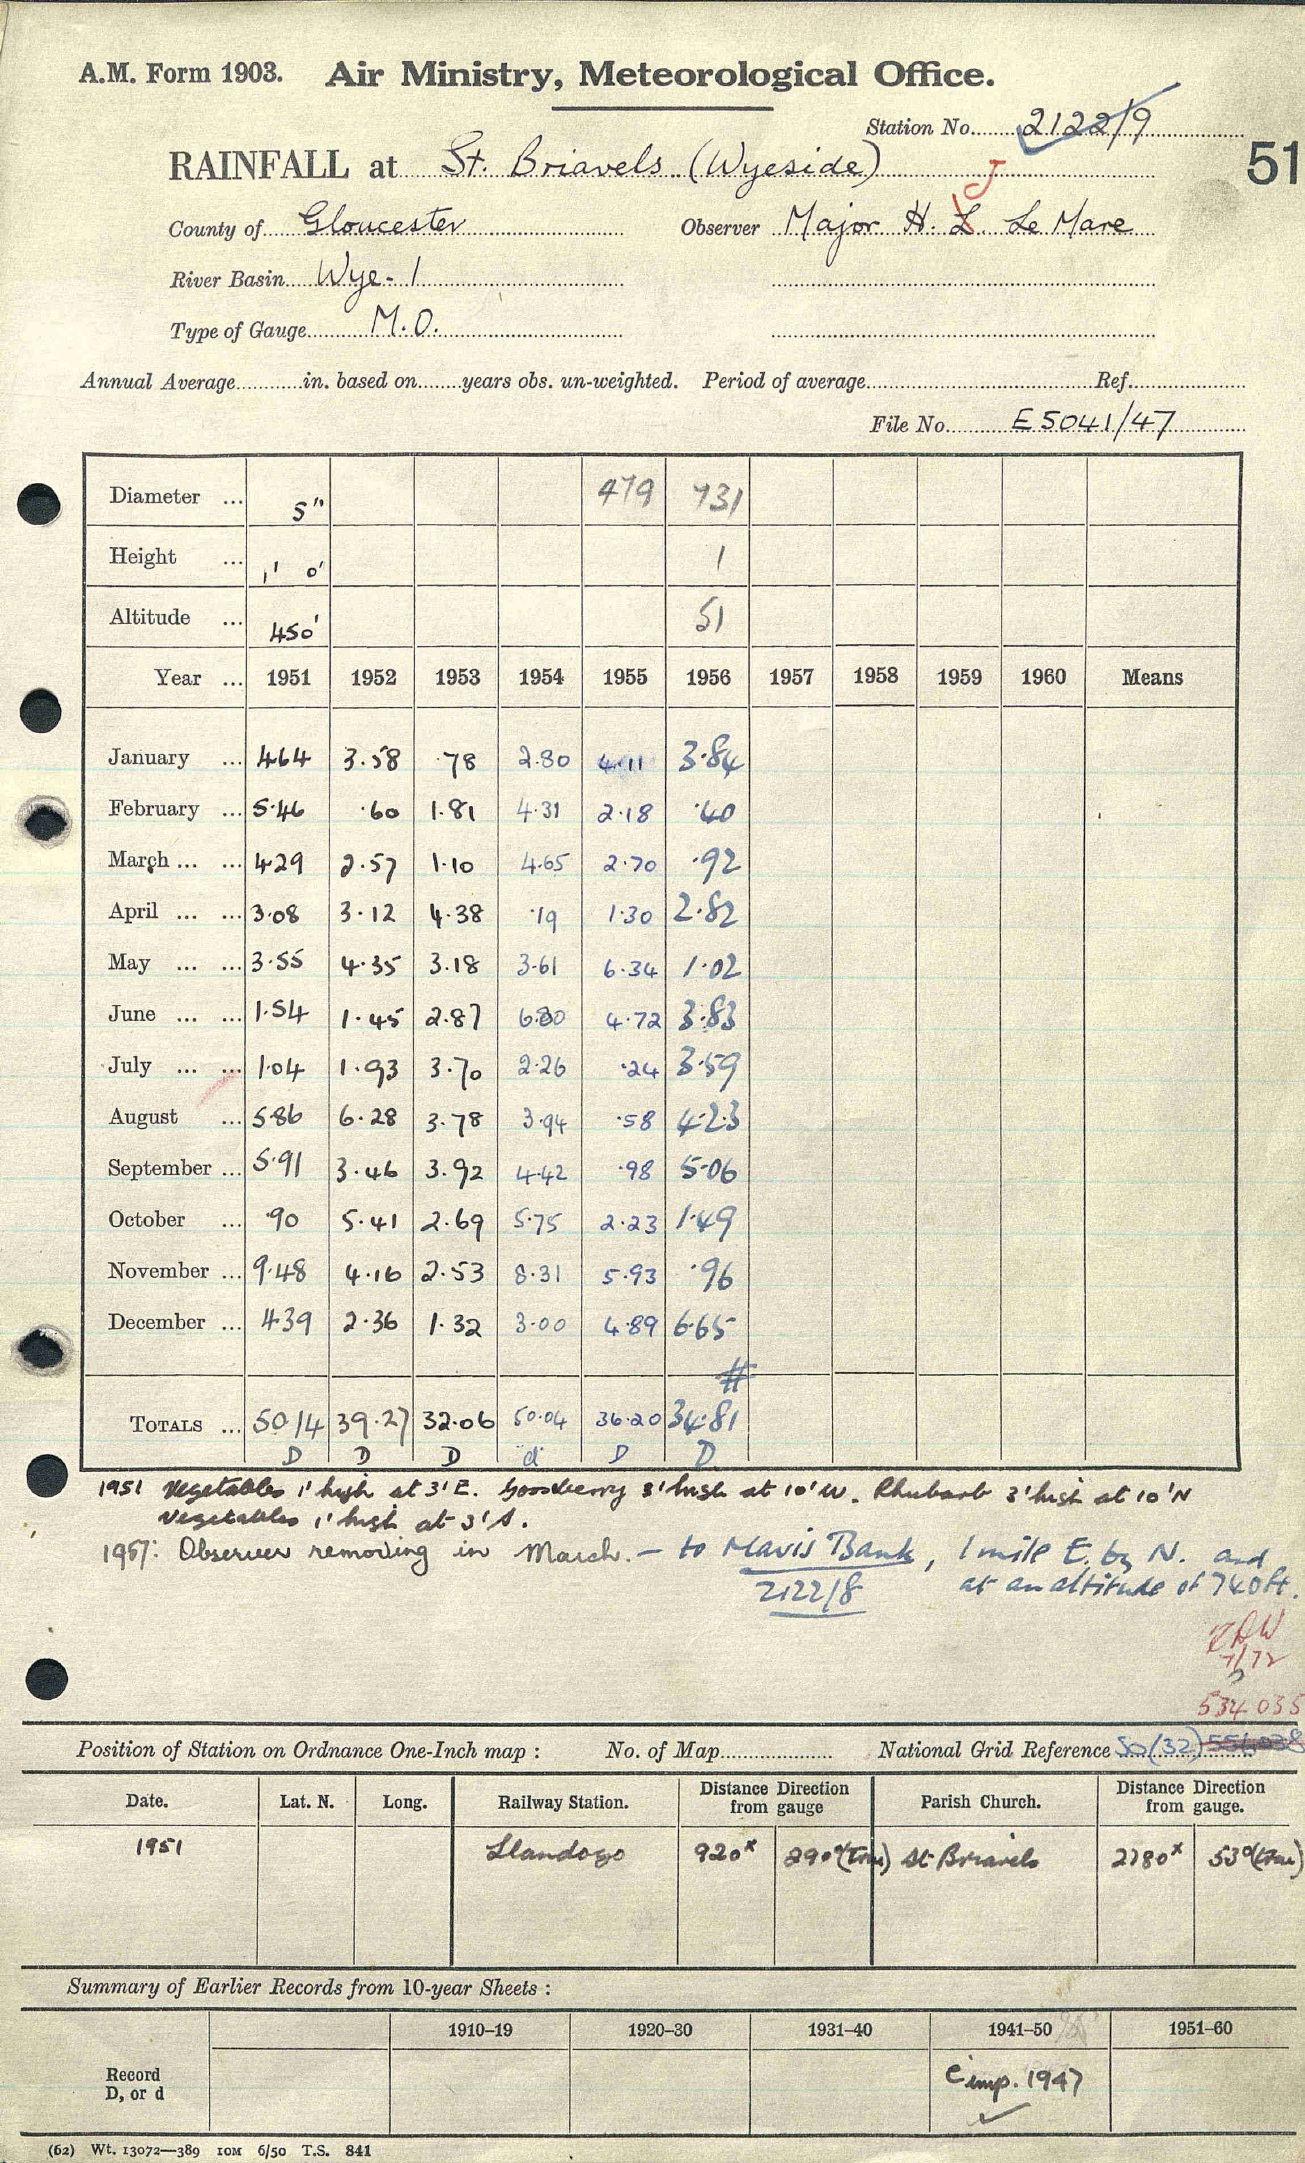 A.M. Form 1903. Air Ministry, Meteorological Office.
Station No. 2122/9
RAINFALL at St. Briavels (Wyeside) 51
J
County of Gloucester Observer Major H. L. Le Mare
River Basin Wye - 1
Type of Gauge M.O.
Annual Average in. based on years obs. un-weighted. Period of average Ref.
File No. E 5041/47
Diameter ... 5" 479 731
Height ... 1' 0' 1
Altitude ... 450' 51
Year ... 1951 1952 1953 1954 1955 1956 1957 1958 1959 1960 Means
January ... 4.64 3.58 .78 2.80 4.11 3.84
February ... 5.46 .60 1.81 4.31 2.18 .40
March ... ... 4.29 2.57 1.10 4.65 2.70 .92
April ... ... 3.08 3.12 4.38 .19 1.30 2.82
May ... ... 3.55 4.35 3.18 3.61 6.34 1.02
June ... ... 1.54 1.45 2.87 6.80 4.72 3.83
July ... ... 1.04 1.93 3.70 2.26 .24 3.59
August ... 5.86 6.28 3.78 3.94 .58 4.23
September ... 5.91 3.46 3.92 4.42 .98 5.06
October ... .90 5.41 2.69 5.75 2.23 1.49
November ... 9.48 4.16 2.53 8.31 5.93 .96
December ... 4.39 2.36 1.32 3.00 4.89 6.65
#
TOTALS ... 50.14 39.27 32.06 50.04 36.20 34.81
D D D d D D
1951 Vegetables 1' high at 3' E. Gooseberry 3' high at 10' W. Rhubarb 3' high at 10' N
Vegetables 1' high at 3' S.
1957: Observer removing in March. - to Mavis Bank, 1 mile E. by N. and
2122/8 at an altitude of 740 ft.
7/72
534 035
Position of Station on Ordnance One-Inch map : No. of Map National Grid Reference SO (32) 554038
Date. Lat. N. Long. Railway Station. Distance Direction from gauge Parish Church. Distance Direction from gauge.
1951 Llandogo 920x 290° (true) St Briavels 2780x 53° (true)
Summary of Earlier Records from 10-year Sheets :
1910–19 1920–30 1931–40 1941–50 1951–60
Record
D, or d
imp. 1947
(62) Wt. 13072—389 10M 6/50 T.S. 841